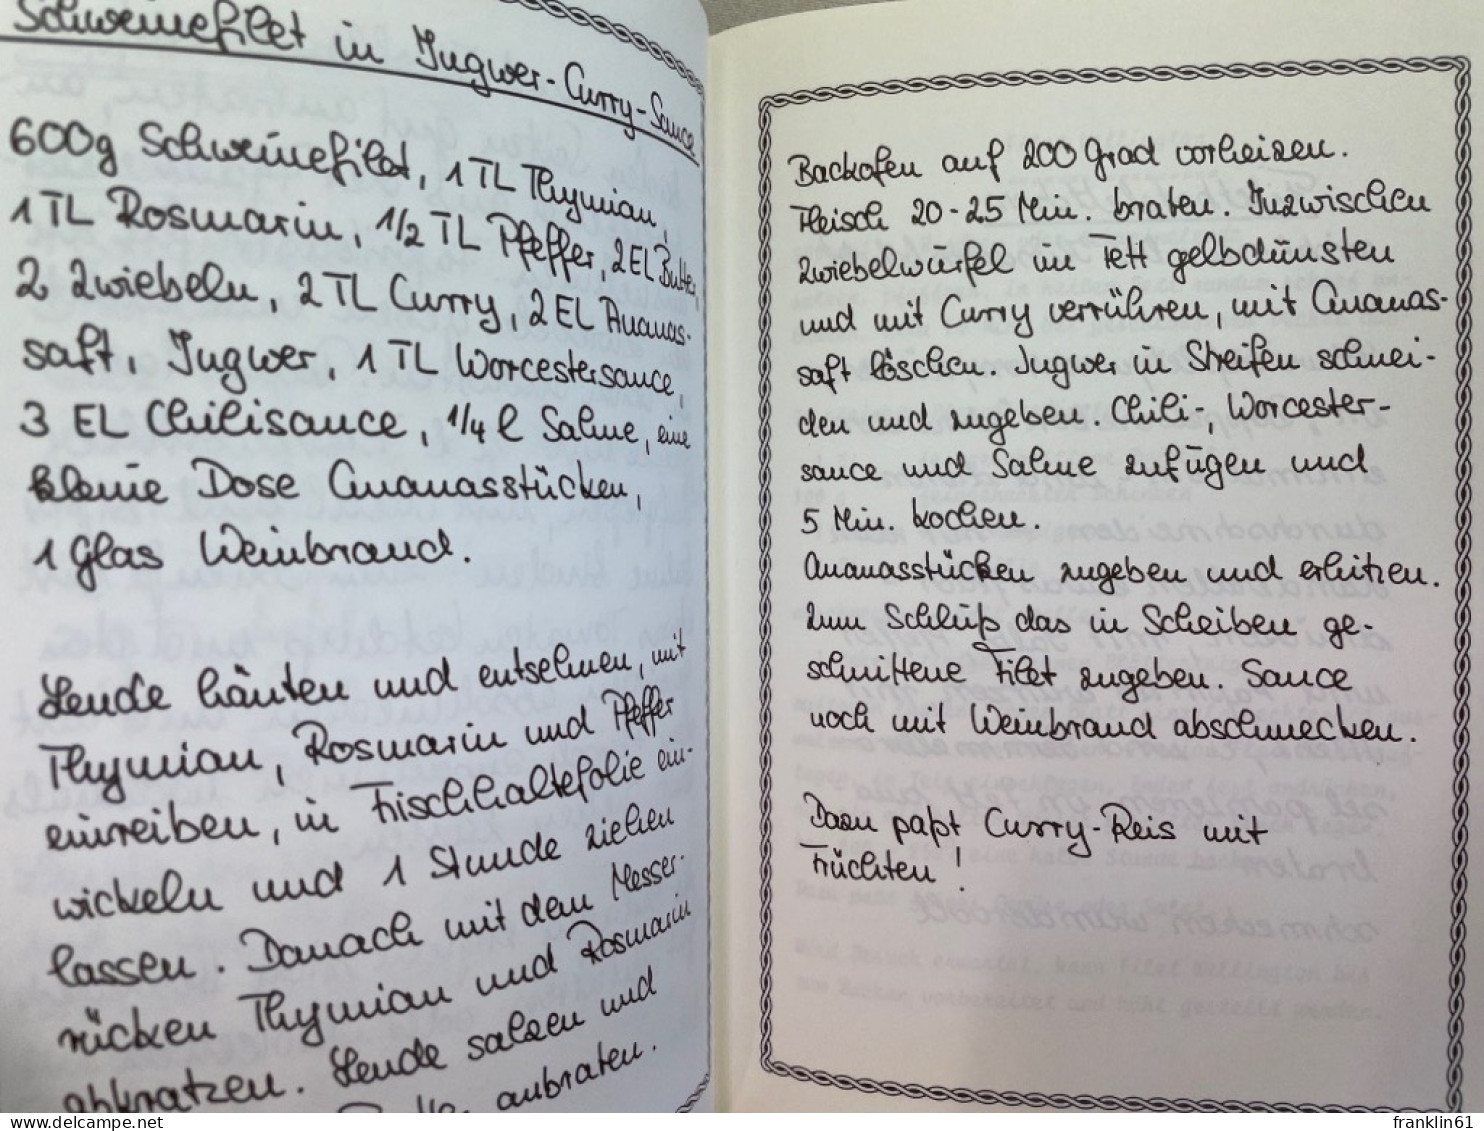 Schweinefilet in Ingwer-Curry-Sauce
600g Schweinefilet, 1 TL Thymian,
1 TL Rosmarin, 1/2 TL Pfeffer, 2 EL Butter,
2 Zwiebeln, 2 TL Curry, 2 EL Ananas-
saft, Ingwer, 1 TL Worcestersauce,
3 EL Chilisauce, 1/4 l Sahne, eine
kleine Dose Ananasstücken,
1 Glas Weinbrand.
Lende häuten und entsehnen, mit
Thymian, Rosmarin und Pfeffer
einreiben, in Frischhaltefolie ein-
wickeln und 1 Stunde ziehen
lassen. Danach mit dem Messer-
rücken Thymian und Rosmarin
abkratzen. Lende salzen und
anbraten.
Backofen auf 200 Grad vorheizen.
Fleisch 20-25 Min. braten. Inzwischen
Zwiebelwürfel im Fett gelbdünsten
und mit Curry verrühren, mit Ananas-
saft löschen. Ingwer in Streifen schnei-
den und zugeben. Chili-, Worcester-
sauce und Sahne zufügen und
5 Min. kochen.
Ananasstücken zugeben und erhitzen.
Zum Schluß das in Scheiben ge-
schnittene Filet zugeben. Sauce
noch mit Weinbrand abschmecken.
Dazu paßt Curry-Reis mit
Früchten!
www.delcampe.net
franklin61